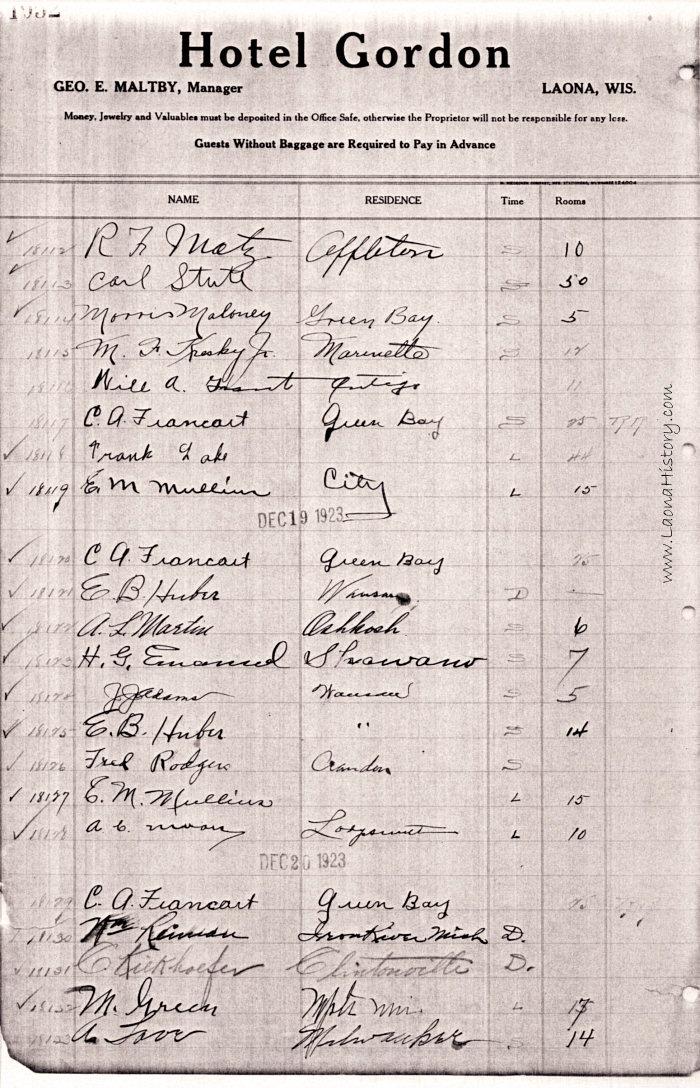 Hotel Gordon
GEO. E. MALTBY, Manager LAONA, WIS.
Money, Jewelry and Valuables must be deposited in the Office Safe, otherwise the Proprietor will not be responsible for any loss.
Guests Without Baggage are Required to Pay in Advance
NAME RESIDENCE Time Rooms
18112 R F Matz Appleton S 10
18113 Carl Stute S 50
18114 Morris Maloney Green Bay. S 5
18115 M. F. Kresky Jr. Marinette S 12
18116 Will A. Antigo 11
18117 C. A. Francart Green Bay S 25
18118 Frank Lake L 44
18119 E M Mullins City L 15
DEC 19 1923
18120 C A. Francart Green Bay 25
18121 E. B. Huber Wausau D
18122 A. L. Martin Oshkosh S 6
18123 H. G. Emanuel Shawano S 7
18124 J. J. Adams Wausau S 5
18125 E. B. Huber " S 14
18126 Fred Rodgers Crandon S
18127 E. M. Mullins L 15
18128 A. C. L 10
DEC 20 1923
18129 C. A. Francart Green Bay 25
18130 Wm Reinau Iron River Mich D.
18131 E Kiekhoefer Clintonville D.
18132 M. Green L 13
A. Milwaukee 14
www.LaonaHistory.com